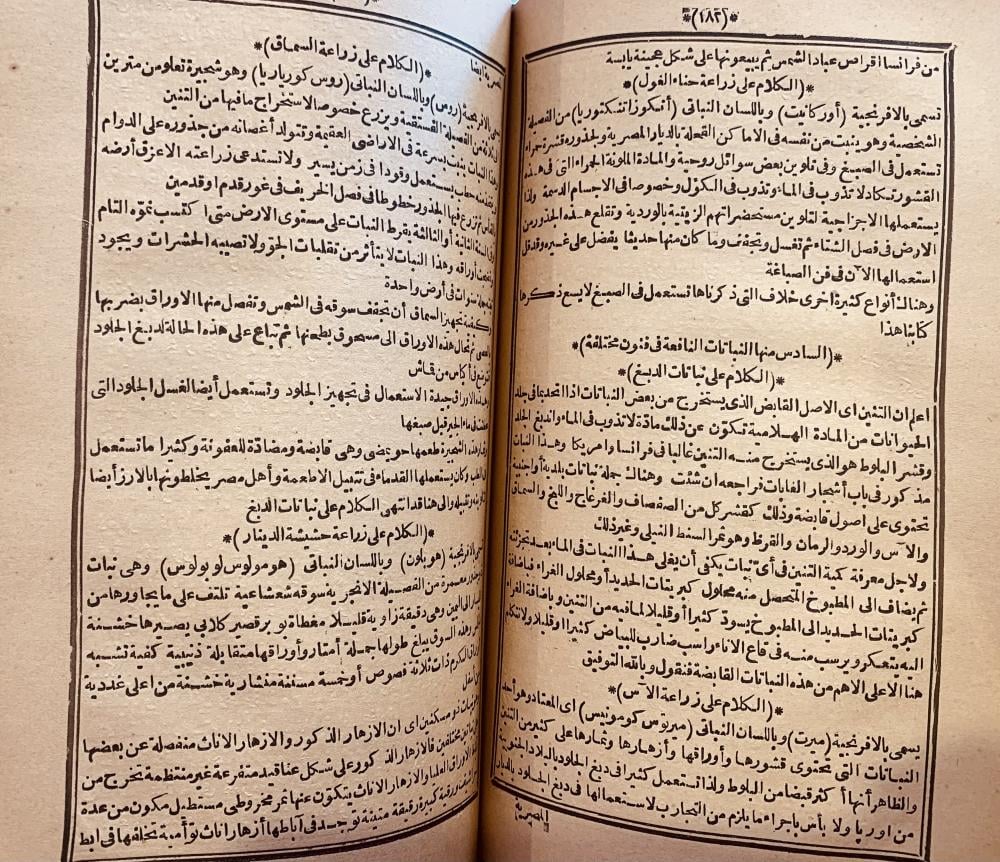 *(١٨٢)*
من فرانسا اقراص عباد الشمس ثم يبيعونها على شكل عجينة يابسة
*(الكلام على زراعة حناء الغول)*
تسمى بالافرنجية (أوركانيت) وباللسان النباتى (أنكوزا تنكتوريا) من الفصيلة
الشخصية وهو ينبت من نفسه فى الاماكن القحلة بالديار المصرية ولجذوره قشرة حمراء
تستعمل فى الصبغ وفى تلوين بعض سوائل روحية والمادة الملونة الحمراء التى فى هذه
القشور تكاد لا تذوب فى الماء وتذوب فى الكؤل وخصوصا فى الاجسام الدسمة ولذا
يستعملها الاجزاجية لتلوين مستحضراتهم الزيتية بالوردية وتقلع هذه الجذور من
الارض فى فصل الشتاء ثم تغسل وتجفف وما كان منها حديثا يفضل على غيره وقد قل
استعمالها الآن فى فن الصباغة
وهناك أنواع كثيرة اخرى خلاف التى ذكرناها تستعمل فى الصبغ لا يسع ذكرها
كتابنا هذا
*(السادس منها النباتات النافعة فى فنون مختلفة)*
*(الكلام على نباتات الدبغ)*
اعلم ان التنين اى الاصل القابض الذى يستخرج من بعض النباتات اذا اتحد بما فى جلد
الحيوانات من المادة الهلامية تكوّن عن ذلك مادّة لا تذوب فى الماء واندبغ الجلد
وقشر البلوط هو الذى يستخرج منه التنين غالبا فى فرانسا وامريكا وهذا النبات
مذكور فى باب أشجار الغابات فراجعه ان شئت وهناك جملة نباتات بلدية أو اجنبية
تحتوى على اصول قابضة وذلك كقشر كل من الصفصاف والغرغاج واللبخ والسماق
والآس والورد والرمان والقرظ وهو ثمر السنط النيلى وغير ذلك
ولاجل معرفة كمية التنين فى أى نبات يكفى أن يغلى هذا النبات فى الماء بعد تجزئته
ثم يضاف الى المطبوخ المتحصل منه محلول كبريتات الحديد أو محلول الغراء فباضافة
كبريتات الحديد الى المطبوخ يسودّ كثيرا أو قليلا لما فيه من التنين وباضافة الغراء
اليه يتعكر ويرسب منه فى قاع الاناء راسب ضارب للبياض كثيرا أو قليلا ولا نتكلم
هنا الا على الاهم من هذه النباتات القابضة فنقول وبالله التوفيق
*(الكلام على زراعة الآس)*
يسمى بالافرنجية (ميرت) وباللسان النباتى (ميرتوس كومونيس) اى المعتاد وهو أحد
النباتات التى يحتوى قشورها وأوراقها وأزهارها وثمارها على كثير من التنين
والظاهر أنها أكثر قبضا من البلوط ولذا تستعمل كثيرا فى دبغ الجلود بالبلاد الجنوبية
من اوربا ولا بأس باجراء ما يلزم من التجارب لاستعمالها فى دبغ الجلود بالديار
المصرية
المصرية أيضا
*(الكلام على زراعة السماق)*
بالافرنجية (روس) وباللسان النباتى (روس كورياريا) وهو شجيرة تعلو من مترين
الى ثلاثة من الفصيلة الفستقية ويزرع خصوصا لاستخراج ما فيها من التنين
وهذا النبات ينبت بسرعة فى الاراضى العقيمة وتتولد أغصانه من جذوره على الدوام
حطب يستعمل وقودا فى زمن يسير ولا تستدعى زراعته الا عزق أرضه
ثم تزرع فيها الجذور خطوطا فى فصل الخريف فى غور قدم او قدمين
وفى السنة الثانية أو الثالثة يقرط النبات على مستوى الارض متى اكتسب نموّه التام
أوراقه وهذا النبات لا يتأثر من تقلبات الجوّ ولا تصيبه الحشرات ويجود
جملة سنوات فى أرض واحدة
وكيفية تجهيز السماق أن تجفف سوقه فى الشمس وتفصل منها الاوراق بضربها
بالعصى ثم تحال هذه الاوراق الى مسحوق بطحنها ثم تباع على هذه الحالة لدبغ الجلود
فى أكياس من قماش
وهذه الاوراق جيدة الاستعمال فى تجهيز الجلود وتستعمل أيضا لغسل الجلود التى
فى ماء الجير قبل صبغها
هذه الشجيرة طعمها حمضى وهى قابضة ومضادّة للعفونة وكثيرا ما تستعمل
فى الطب وكان يستعملها القدماء فى تتبيل الاطعمة وأهل مصر يخلطونها بالارز أيضا
والى هنا قد انتهى الكلام على نباتات الدبغ
*(الكلام على زراعة حشيشة الدينار)*
بالافرنجية (هوبلون) وباللسان النباتى (هومولوس لوبولوس) وهى نبات
معمرة من الفصيلة الانجرية سوقه شعشاعية تلتف على ما يجاورها من
اليسار الى اليمين وهى دقيقة زاوية قليلا مغطاة بوبر قصير كلابى يصيرها خشنة
وهذه السوق يبلغ طولها جملة أمتار وأوراقها متقابلة ذنيبية كفية تشبه
أوراق الكرم ذات ثلاثة فصوص أو خمسة مسننة منشارية خشنة من اعلى غددية
من أسفل
نبات ذو مسكنين اى ان الازهار الذكور والازهار الاناث منفصلة عن بعضها
مختلفين فالازهار الذكور على شكل عناقيد متفرعة غير منتظمة تخرج من
الاوراق العليا والازهار الاناث يتكون عنها ثمر مخروطى مستطيل مكون من عدة
ورقية كبيرة رقيقة متينة توجد فى آباطها أزهار اناث توأمية يخلفها فى ابط